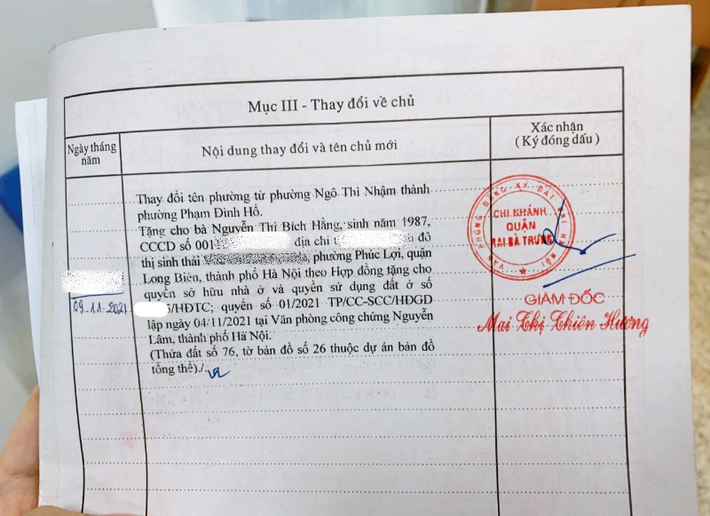 Mục III - Thay đổi về chủ
Ngày tháng năm
Nội dung thay đổi và tên chủ mới
Xác nhận
(Ký đóng dấu)
Thay đổi tên phường từ phường Ngô Thì Nhậm thành
phường Phạm Đình Hổ.
Tặng cho bà Nguyễn Thị Bích Hằng, sinh năm 1987,
CCCD số 001 địa chỉ đô
thị sinh thái , phường Phúc Lợi, quận
Long Biên, thành phố Hà Nội theo Hợp đồng tặng cho
quyền sở hữu nhà ở và quyền sử dụng đất ở số
/HĐTC; quyển số 01/2021 TP/CC-SCC/HĐGD
lập ngày 04/11/2021 tại Văn phòng công chứng Nguyễn
Lâm, thành phố Hà Nội.
(Thửa đất số 76, tờ bản đồ số 26 thuộc dự án bản đồ
tổng thể)./.
09-11-2021
VĂN PHÒNG ĐĂNG KÝ ĐẤT ĐAI HÀ NỘI
CHI NHÁNH
QUẬN
HAI BÀ TRƯNG
GIÁM ĐỐC
Mai Thị Thiên Hương